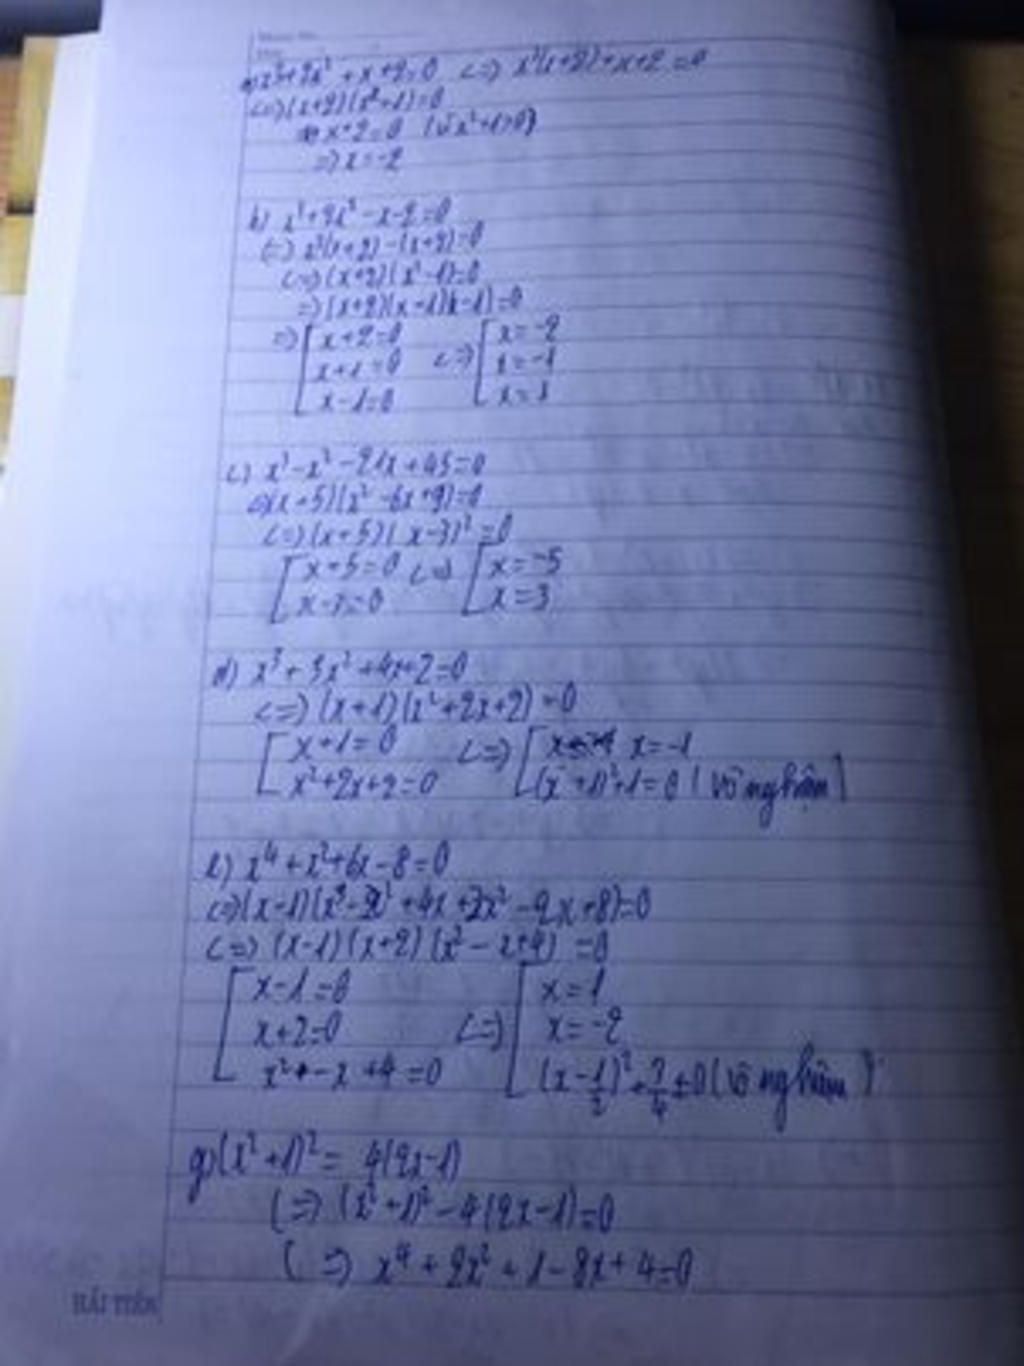 a) x³+2x²+x+2=0 <=> x²(x+2)+x+2=0
<=>(x+2)(x²+1)=0
x+2=0 (vì x²+1>0)
=> x=-2
b) x³+2x²-x-2=0
(=) x²(x+2)-(x+2)=0
<=>(x+2)(x²-1)=0
=>(x+2)(x+1)(x-1)=0
=> [ x+2=0 <=> [ x=-2
x+1=0 x=-1
x-1=0 x=1
c) x³-x²-21x+45=0
<=>(x+5)(x²-6x+9)=0
<=>(x+5)(x-3)²=0
[ x+5=0 <=> [ x=-5
x-3=0 x=3
d) x³+3x²+4x+2=0
<=>(x+1)(x²+2x+2)=0
[ x+1=0 <=> [ x=-1
x²+2x+2=0 (x+1)²+1=0 (vô nghiệm)
e) x⁴+x²+6x-8=0
<=>(x-1)(x³-x²+4x+2x²-2x+8)=0
<=>(x-1)(x+2)(x²-x+4)=0
[ x-1=0 [ x=1
x+2=0 <=> x=-2
x²-x+4=0 (x-1/2)²+ /4=0 (vô nghiệm)
g) (x²+1)²=4(2x-1)
(=) (x²+1)²-4(2x-1)=0
(=) x⁴+2x²+1-8x+4=0
HẢI TIẾN